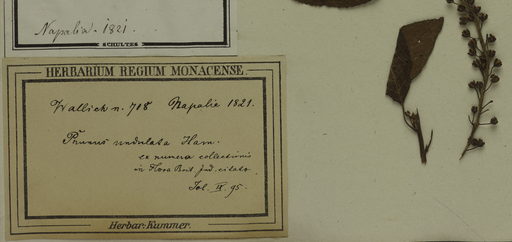 Napalia. 1821.
SCHULTES
HERBARIUM REGIUM MONACENSE.
Wallich n. 708 Napalia 1821.
Prunus undulata Ham.
ex numero collectionis
in Flora Brit. Ind. citato
IX 95.
Herbar. Kummer.